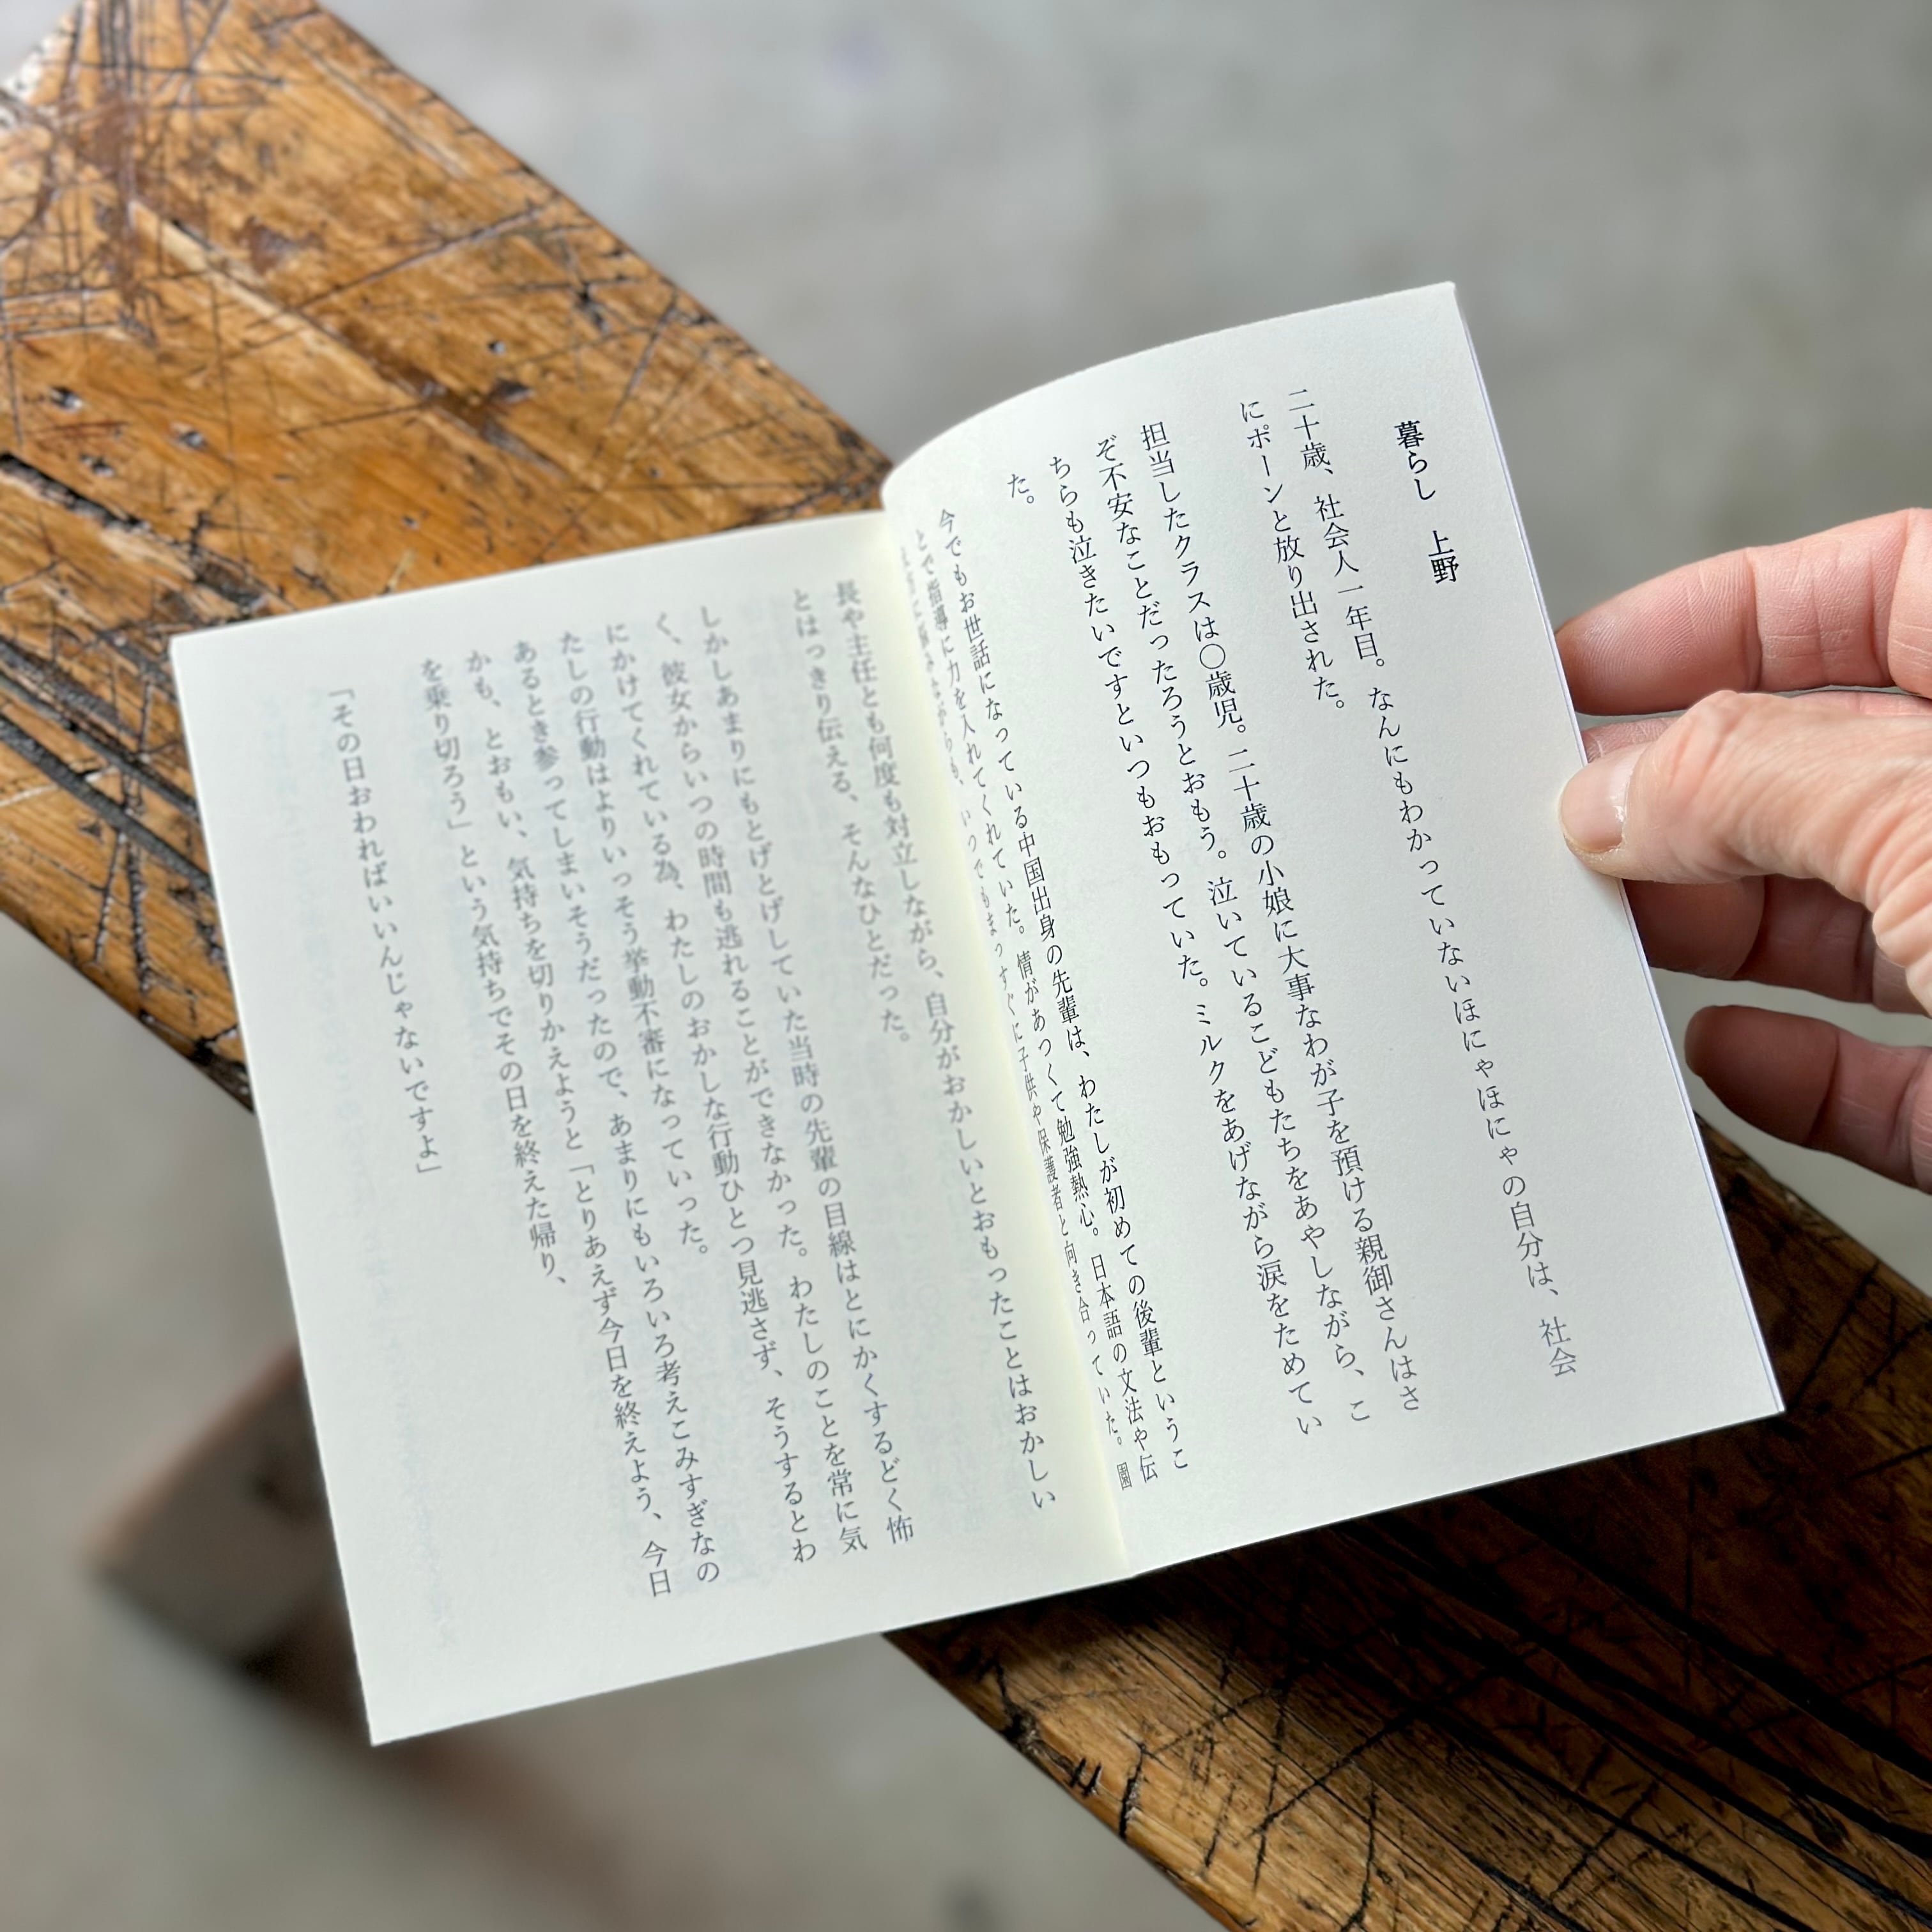 暮らし　上野
二十歳、社会人一年目。なんにもわかっていないほにゃほにゃの自分は、社会
にポーンと放り出された。
担当したクラスは〇歳児。二十歳の小娘に大事なわが子を預ける親御さんはさ
ぞ不安なことだったろうとおもう。泣いているこどもたちをあやしながら、こ
ちらも泣きたいですといつもおもっていた。ミルクをあげながら涙をためてい
た。
今でもお世話になっている中国出身の先輩は、わたしが初めての後輩というこ
とで指導に力を入れてくれていた。情があつくて勉強熱心。日本語の文法や伝
ながらも、いつでもまっすぐに子供や保護者と向き合っていた。園
長や主任とも何度も対立しながら、自分がおかしいとおもったことはおかしい
とはっきり伝える、そんなひとだった。
しかしあまりにもとげとげしていた当時の先輩の目線はとにかくするどく怖
く、彼女からいつの時間も逃れることができなかった。わたしのことを常に気
にかけてくれている為、わたしのおかしな行動ひとつ見逃さず、そうするとわ
たしの行動はよりいっそう挙動不審になっていった。
あるとき参ってしまいそうだったので、あまりにもいろいろ考えこみすぎなの
かも、とおもい、気持ちを切りかえようと「とりあえず今日を終えよう、今日
を乗り切ろう」という気持ちでその日を終えた帰り、
「その日おわればいいんじゃないですよ」